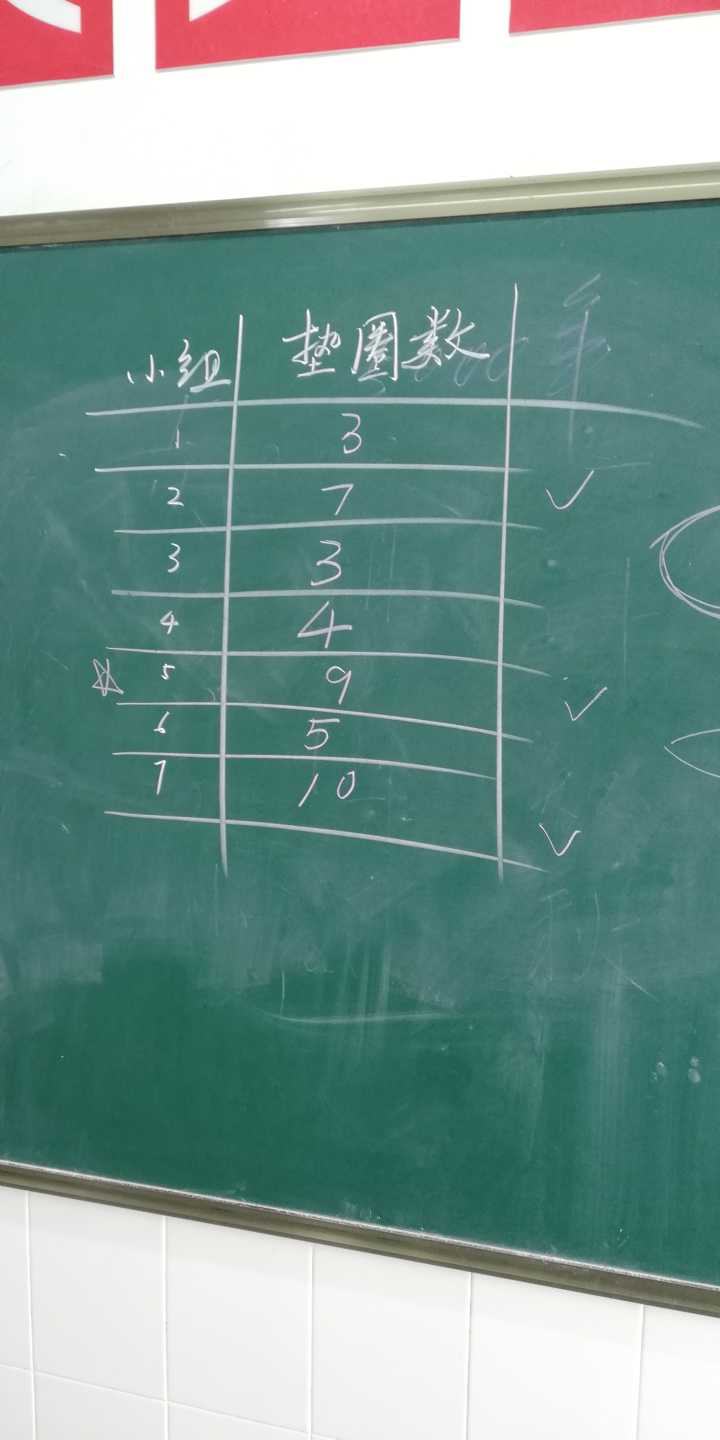 小组 垫圈数
1 3
2 7 ✓
3 3
4 4
☆ 5 9 ✓
6 5
7 10 ✓